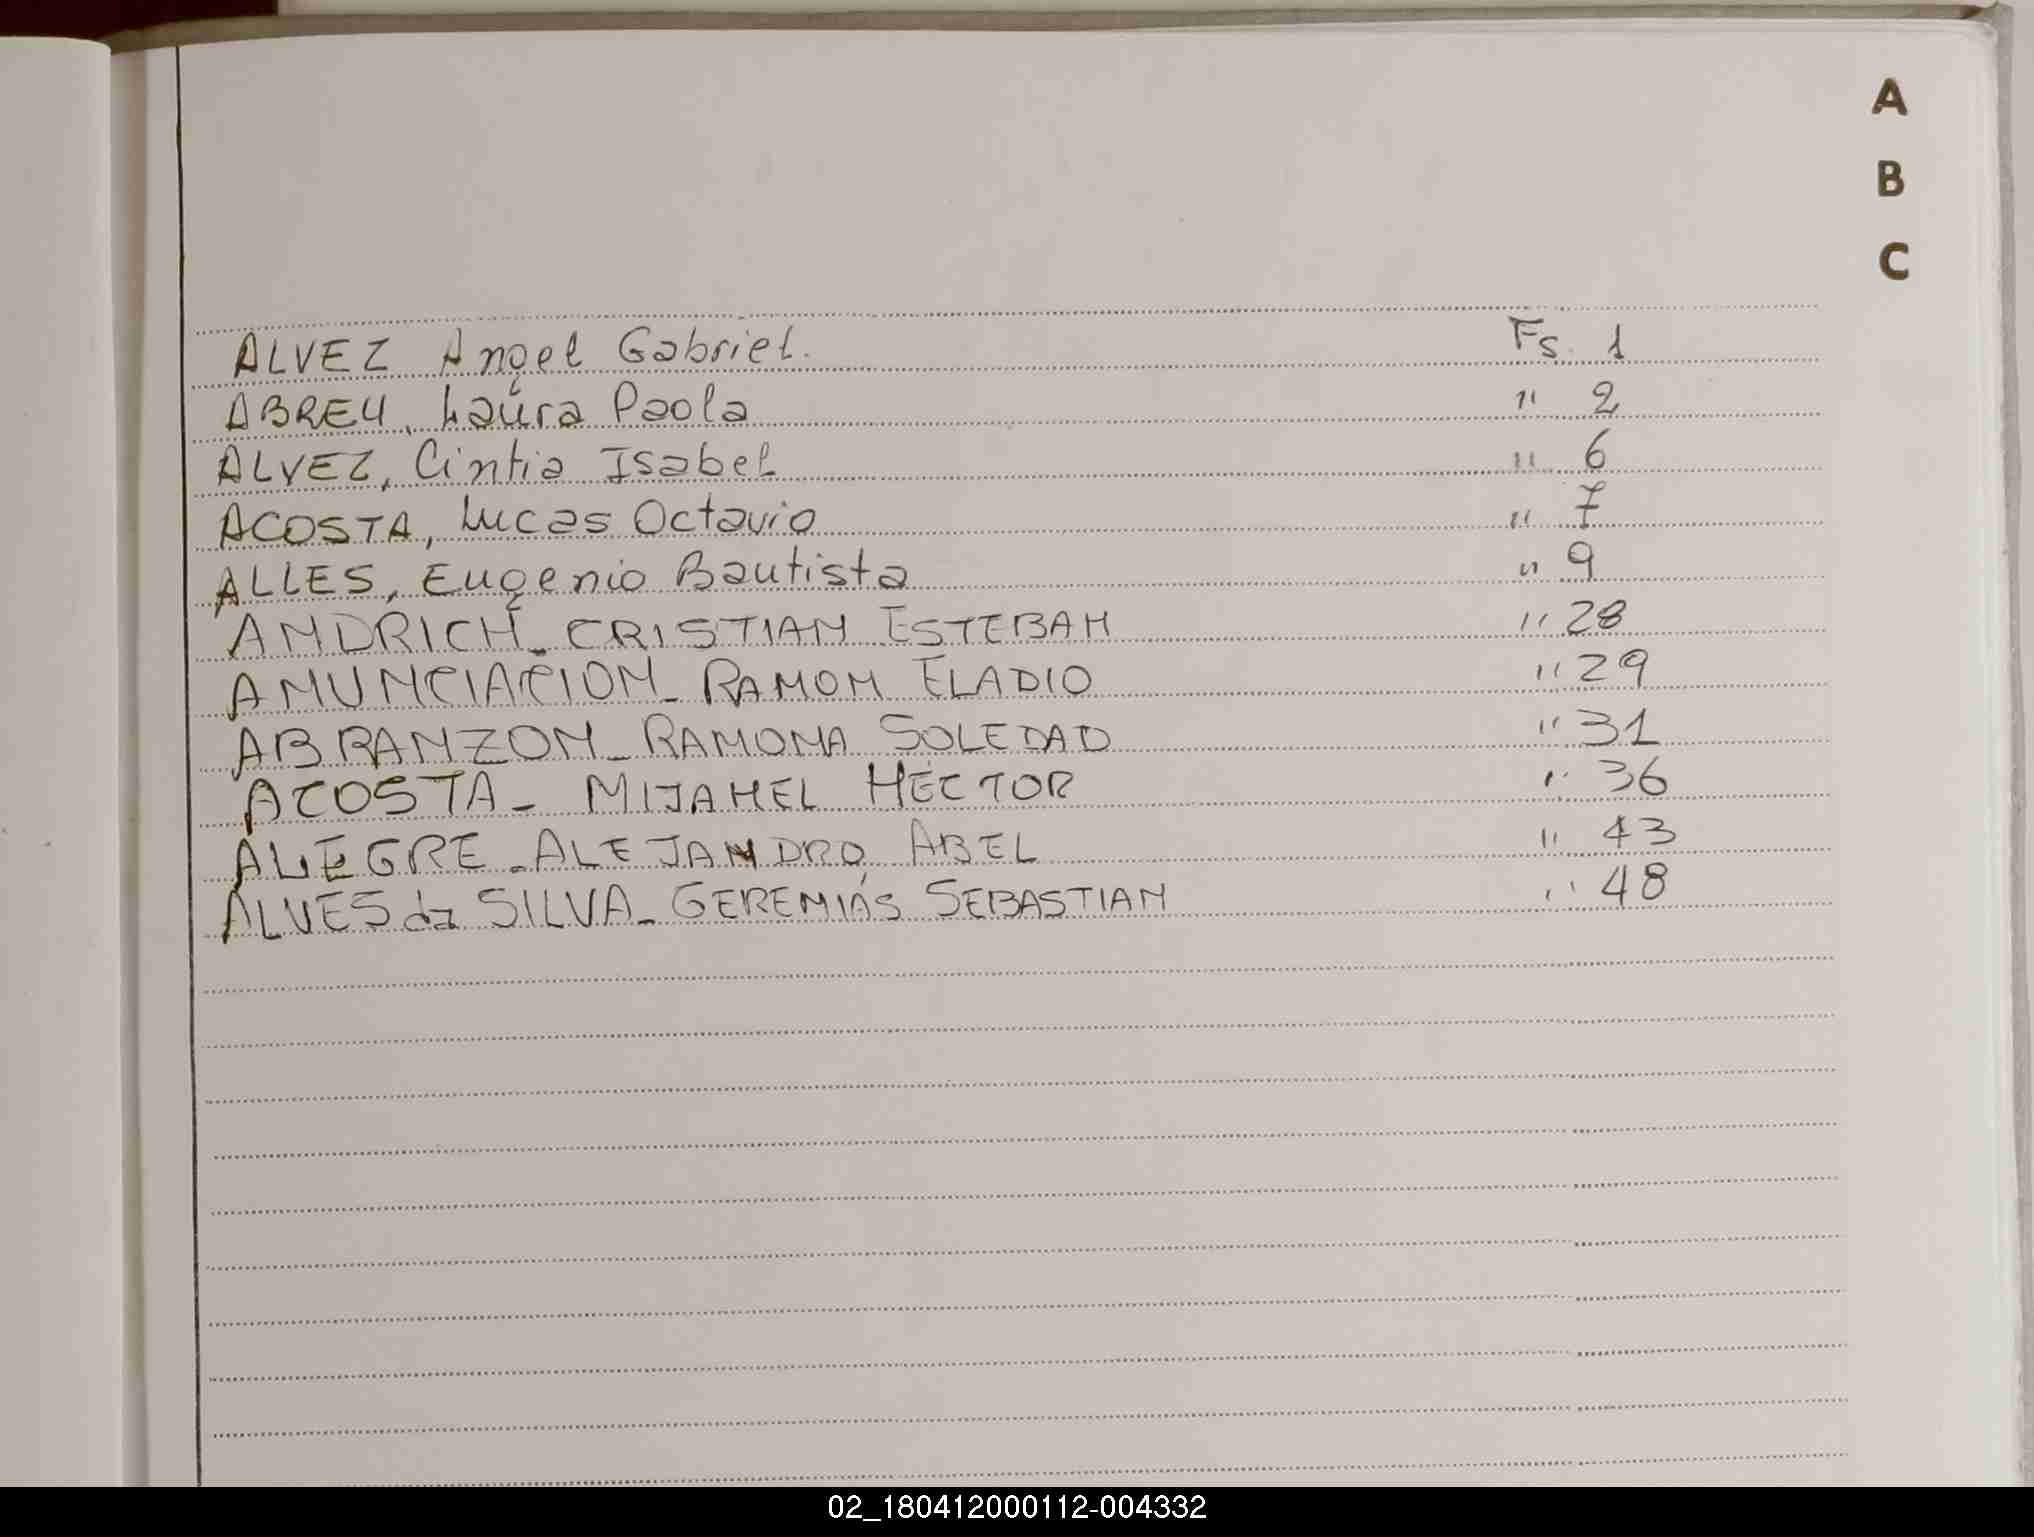 A
B
C
ALVEZ Angel Gabriel. Fs. 1
ABREU, Laura Paola " 2
ALVEZ, Cintia Isabel " 6
ACOSTA, Lucas Octavio " 7
ALLES, Eugenio Bautista " 9
ANDRICH_ CRISTIAN ESTEBAN " 28
ANUNCIACION_ RAMON ELADIO " 29
ABRANZON_ RAMONA SOLEDAD " 31
ACOSTA_ MIJAHEL HÉCTOR " 36
ALEGRE_ ALEJANDRO, ABEL " 43
ALVES da SILVA_ GEREMIÁS SEBASTIAN " 48
02_180412000112-004332